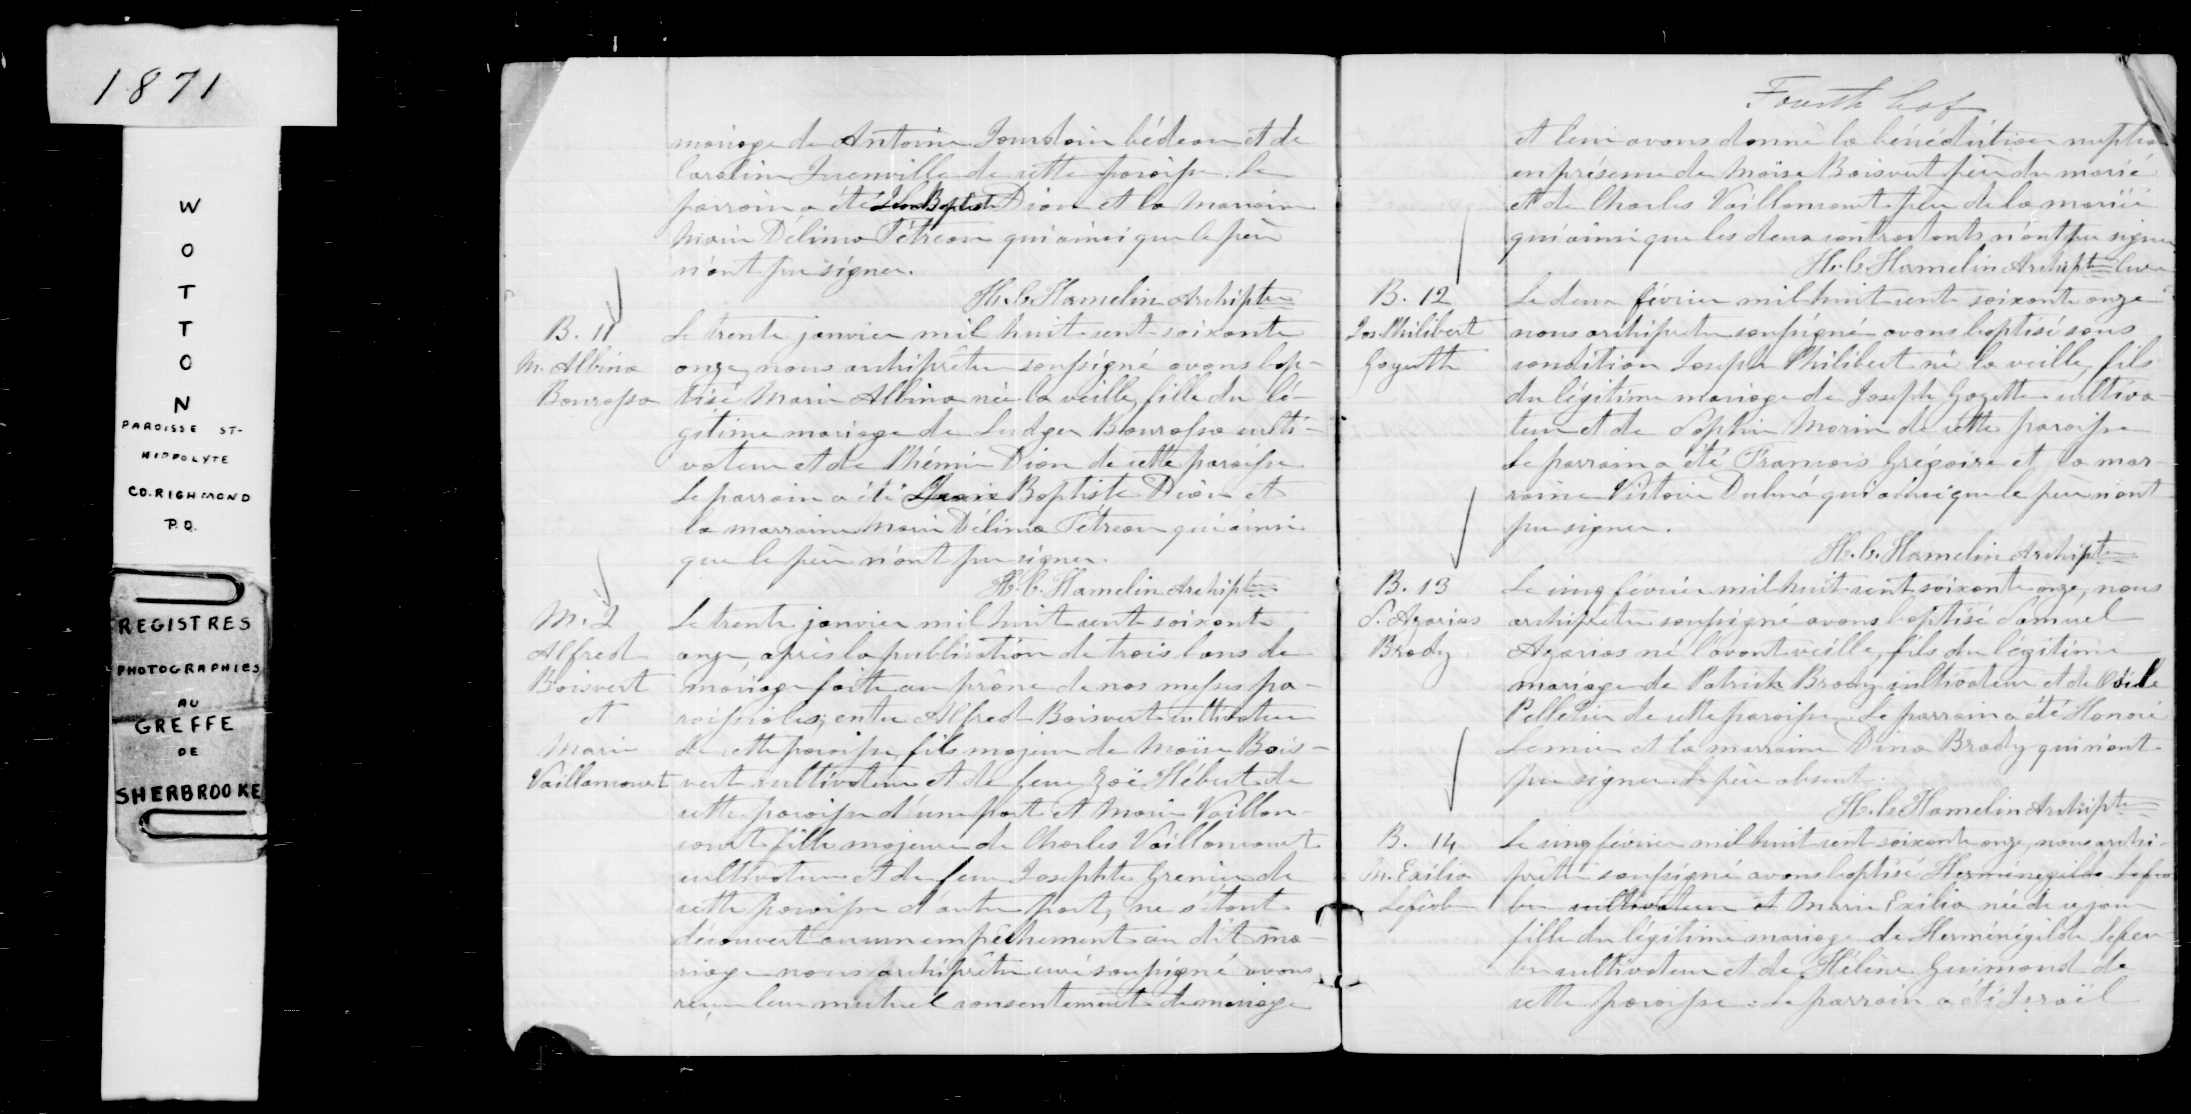 1871
W
O
T
T
O
N
PAROISSE ST-
HIPPOLYTE
CO. RICHMOND
P.Q.
REGISTRES
PHOTOGRAPHIES
AU
GREFFE
DE
SHERBROOKE
mariage de Antoine Jourdain bédeau et de
Caroline de cette paroisse. Le
parrain a été Jean Baptiste Dion et la Marraine
Marie Délima Tétreau qui ainsi que le père
n'ont pu signer.
H. C. Hamelin Archiptre
B. 11
M. Albina
Bourassa
Le trente janvier mil huit cent soixante
onze, nous archiprêtre soussigné avons bap-
tisé Marie Albina née la veille, fille du lé-
gitime mariage de Ludger Bourassa culti-
vateur et de Phémie Dion de cette paroisse
Le parrain a été Baptiste Dion et
la marraine Marie Délima Tétreau qui ainsi
que le père n'ont pu signer.
H. C. Hamelin Archiptre
M. 2
Alfred
Boisvert
et
Marie
Vaillancourt
Le trente janvier mil huit cent soixante
onze, après la publication de trois bans de
mariage faite au prône de nos messes pa-
roissiales, entre Alfred Boisvert cultivateur
de cette paroisse, fils majeur de Moïse Bois-
vert cultivateur et de feue Zoë Hébert de
cette paroisse d'une part et Marie Vaillan-
court fille majeure de Charles Vaillancourt
cultivateur et de feue Josephte Grenier de
cette paroisse d'autre part, ne s'étant
découvert aucun empêchement au dit ma-
riage nous archiprêtre curé soussigné avons
reçu leur mutuel consentement de mariage
Fourth leaf
et leur avons donné la bénédiction nuptiale
en présence de Moïse Boisvert père du marié
et de Charles Vaillancourt père de la mariée
qui ainsi que les deux contractants n'ont pu signer
H. C. Hamelin Archiptre Curé
B. 12
Jos. Philibert
Goyette
Le deux février mil huit cent soixante onze
nous archiprêtre soussigné avons baptisé sous
condition Joseph Philibert né la veille, fils
du légitime mariage de Joseph Goyette cultiva-
teur et de Sophie Morin de cette paroisse
Le parrain a été François Grégoire et la mar-
raine Victoire qui ainsi que le père n'ont
pu signer.
H. C. Hamelin Archiptre
B. 13
S. Azarias
Brady
Le cinq février mil huit cent soixante onze, nous
archiprêtre soussigné avons baptisé Samuel
Azarias né l'avant veille, fils du légitime
mariage de Patrick Brady cultivateur et de Odile
Pelletier de cette paroisse. Le parrain a été Honoré
Lemire et la marraine Dina Brady qui n'ont
pu signer. Le père absent.
H. C. Hamelin Archiptre
B. 14
M. Exilia
Lefebvre
Le cinq février mil huit cent soixante onze, nous archi-
prêtre soussigné avons baptisé Herménégilde Lefeb
bre cultivateur et Marie Exilia née de ce jour
fille du légitime mariage de Herménégilde Lefeb-
bre cultivateur et de Hélène Guimond de
cette paroisse. Le parrain a été Israël